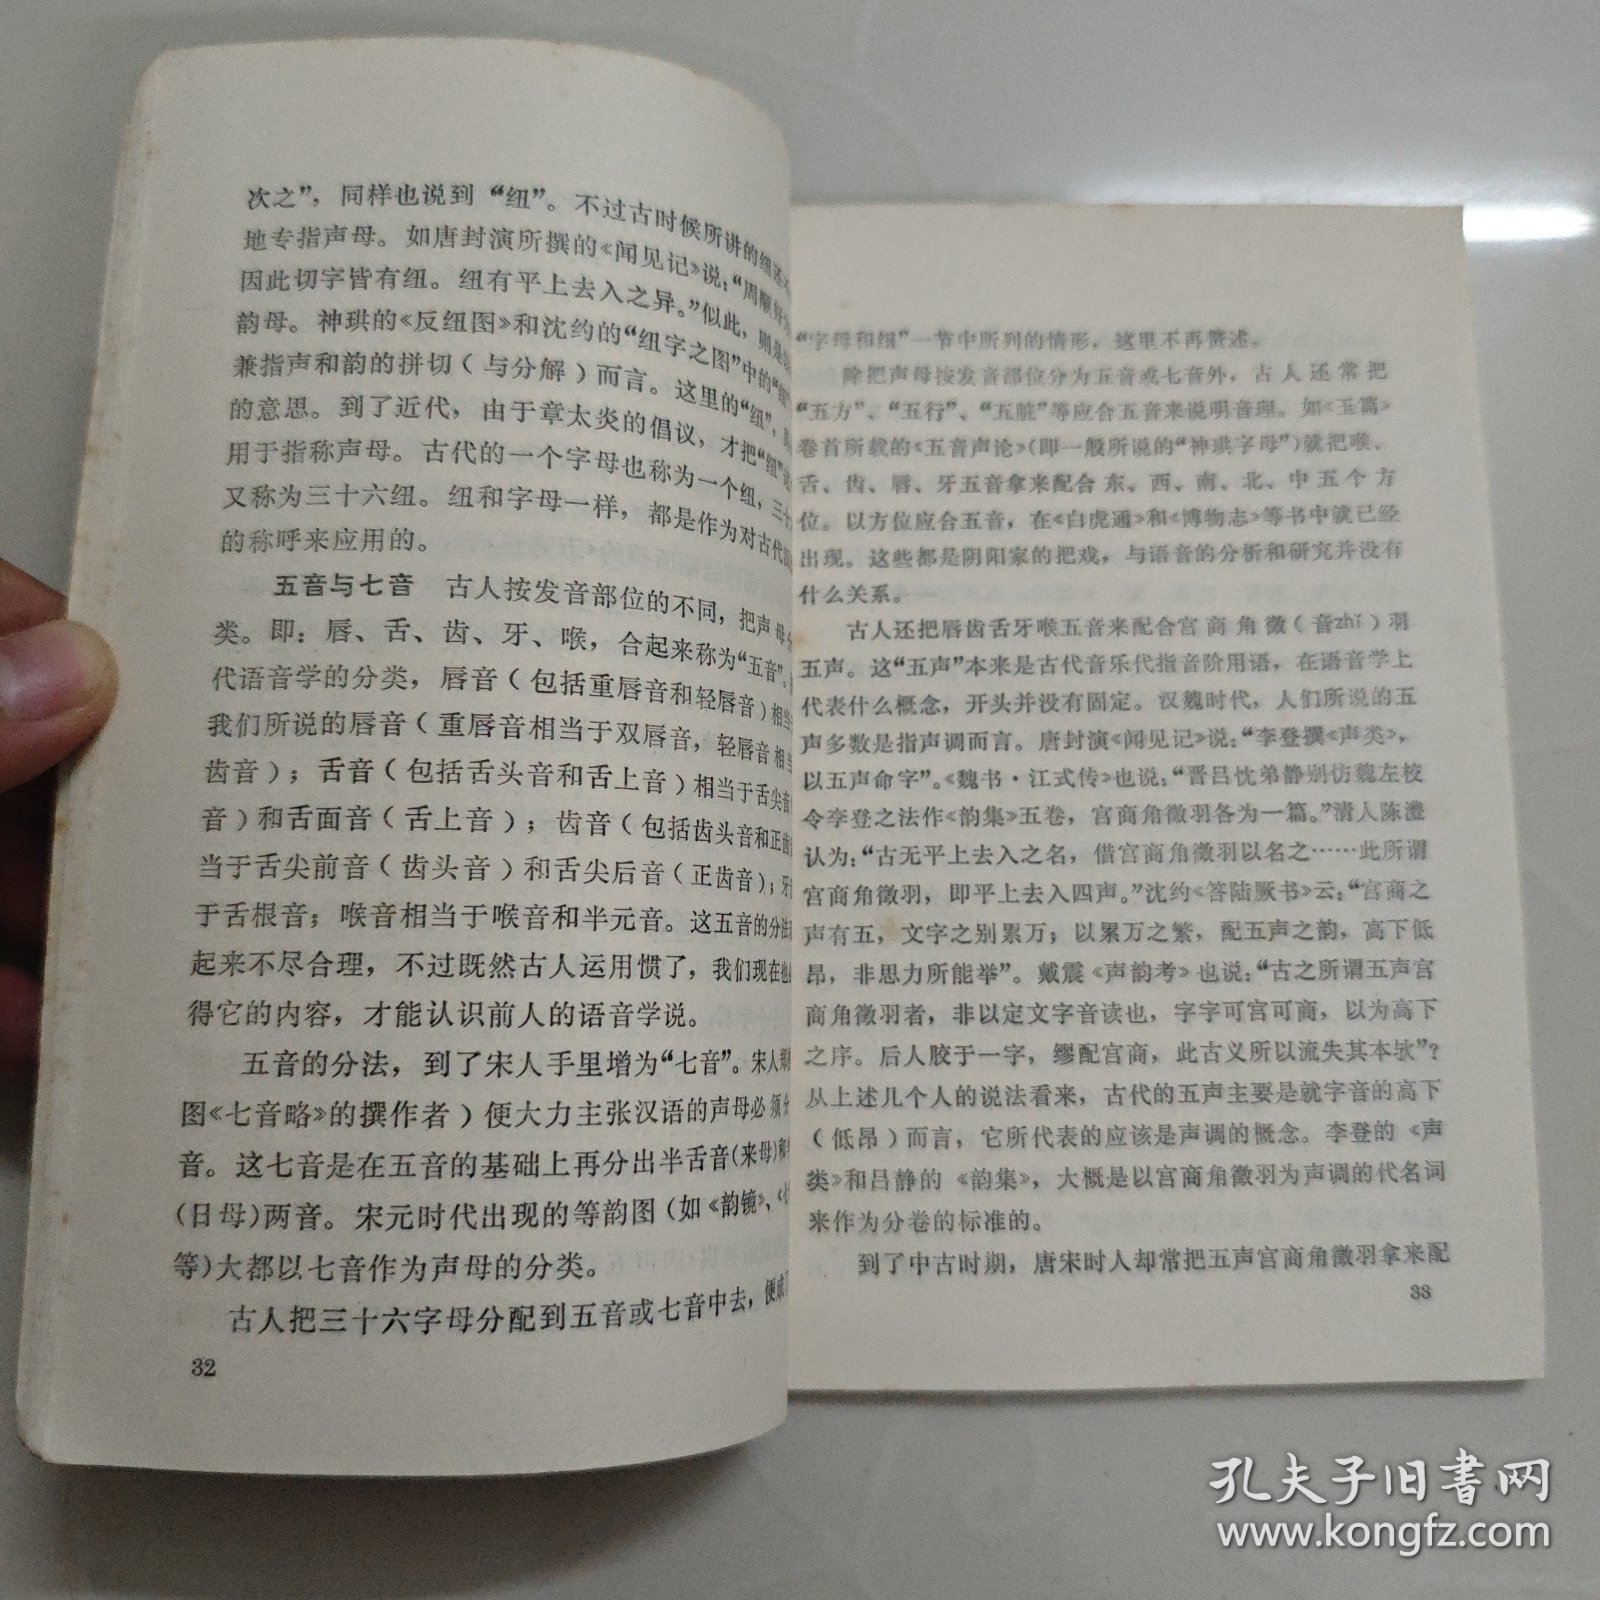 次之”，同样也说到“纽”。不过古时候所讲的纽还
地专指声母。如唐封演所撰的《闻见记》说：“周颙好
因此切字皆有纽。纽有平上去入之异。”似此，则是
韵母。神珙的《反纽图》和沈约的“纽字之图”中的“
兼指声和韵的拼切（与分解）而言。这里的“纽”，
的意思。到了近代，由于章太炎的倡议，才把“纽”
用于指称声母。古代的一个字母也称为一个纽，三十
又称为三十六纽。纽和字母一样，都是作为对古代
的称呼来应用的。
五音与七音　古人按发音部位的不同，把声母
类。即：唇、舌、齿、牙、喉，合起来称为“五音”。
代语音学的分类，唇音（包括重唇音和轻唇音）相当
我们所说的唇音（重唇音相当于双唇音，轻唇音相当
齿音）；舌音（包括舌头音和舌上音）相当于舌尖音
音）和舌面音（舌上音）；齿音（包括齿头音和正齿
当于舌尖前音（齿头音）和舌尖后音（正齿音）；牙
于舌根音；喉音相当于喉音和半元音。这五音的分法
起来不尽合理，不过既然古人运用惯了，我们现在也
得它的内容，才能认识前人的语音学说。
五音的分法，到了宋人手里增为“七音”。宋人郑
图《七音略》的撰作者）便大力主张汉语的声母必须
音。这七音是在五音的基础上再分出半舌音(来母)和
(日母)两音。宋元时代出现的等韵图（如《韵镜》、
等)大都以七音作为声母的分类。
古人把三十六字母分配到五音或七音中去，便成
32
“字母和纽”一节中所列的情形，这里不再赘述。
除把声母按发音部位分为五音或七音外，古人还常把
“五方”、“五行”、“五脏”等应合五音来说明音理。如《玉篇》
卷首所载的《五音声论》(即一般所说的“神珙字母”)就把喉、
舌、齿、唇、牙五音拿来配合东、西、南、北、中五个方
位。以方位应合五音，在《白虎通》和《博物志》等书中就已经
出现。这些都是阴阳家的把戏，与语音的分析和研究并没有
什么关系。
古人还把唇齿舌牙喉五音来配合宫商角徵（音zhǐ）羽
五声。这“五声”本来是古代音乐代指音阶用语，在语音学上
代表什么概念，开头并没有固定。汉魏时代，人们所说的五
声多数是指声调而言。唐封演《闻见记》说：“李登撰《声类》，
以五声命字”。《魏书·江式传》也说：“晋吕忱弟静别仿魏左校
令李登之法作《韵集》五卷，宫商角徵羽各为一篇。”清人陈澧
认为：“古无平上去入之名，借宫商角徵羽以名之……此所谓
宫商角徵羽，即平上去入四声。”沈约《答陆厥书》云：“宫商之
声有五，文字之别累万；以累万之繁，配五声之韵，高下低
昂，非思力所能举”。戴震《声韵考》也说：“古之所谓五声宫
商角徵羽者，非以定文字音读也，字字可宫可商，以为高下
之序。后人胶于一字，缪配宫商，此古义所以流失其本欤”？
从上述几个人的说法看来，古代的五声主要是就字音的高下
（低昂）而言，它所代表的应该是声调的概念。李登的《声
类》和吕静的《韵集》，大概是以宫商角徵羽为声调的代名词
来作为分卷的标准的。
到了中古时期，唐宋时人却常把五声宫商角徵羽拿来配
33
孔夫子旧书网
www.kongfz.com